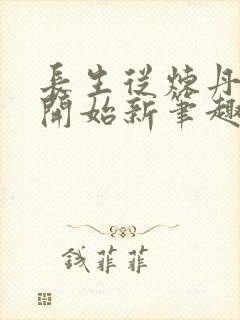 長生從煉丹
開始新筆趣
錢菲菲